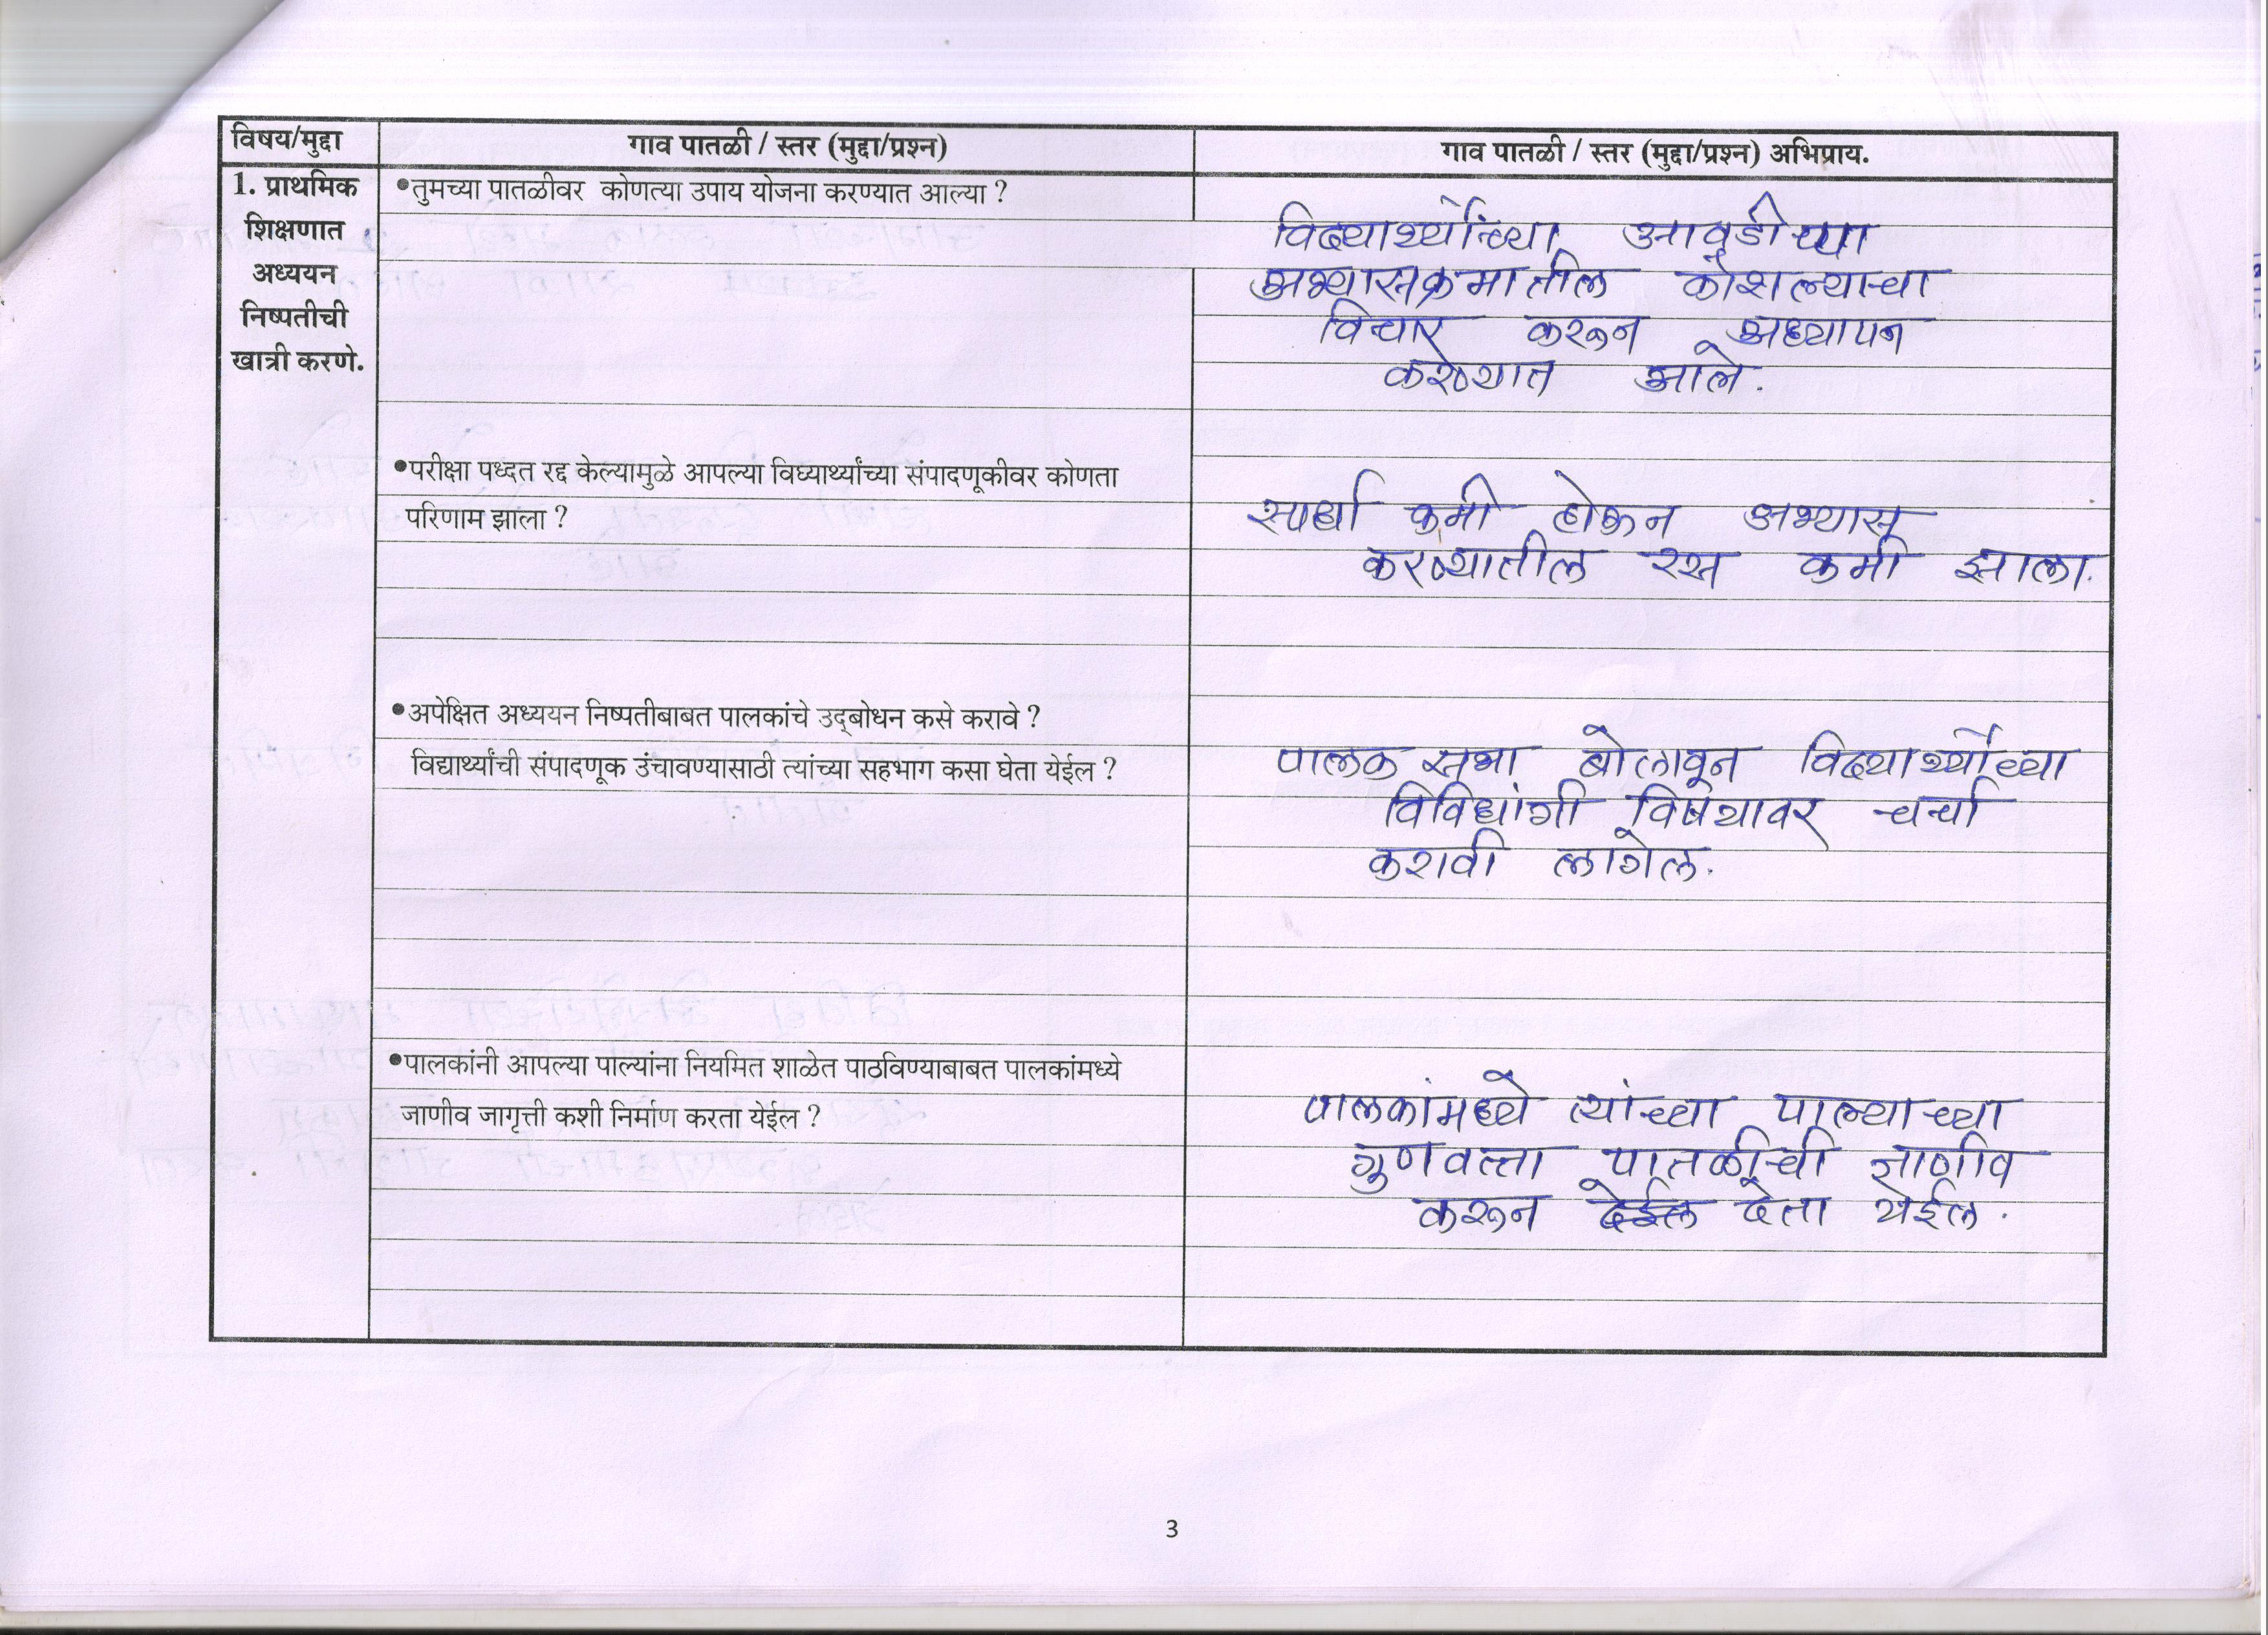 विषय/मुद्दा
गाव पातळी / स्तर (मुद्दा/प्रश्न)
गाव पातळी / स्तर (मुद्दा/प्रश्न) अभिप्राय.
1. प्राथमिक
शिक्षणात
अध्ययन
निष्पतीची
खात्री करणे.
•तुमच्या पातळीवर कोणत्या उपाय योजना करण्यात आल्या ?
विद्यार्थ्यांच्या आवडीच्या
अभ्यासक्रमातील कौशल्याचा
विचार करून अध्यापन
करण्यात आले.
•परीक्षा पध्दत रद्द केल्यामुळे आपल्या विघ्यार्थ्यांच्या संपादणूकीवर कोणता
परिणाम झाला ?
स्पर्धा कमी होऊन अभ्यास
करण्यातील रस कमी झाला.
•अपेक्षित अध्ययन निष्पतीबाबत पालकांचे उद्‌बोधन कसे करावे ?
विद्यार्थ्यांची संपादणूक उंचावण्यासाठी त्यांच्या सहभाग कसा घेता येईल ?
पालक सभा बोलावून विद्यार्थ्यांच्या
विविधांगी विषयावर चर्चा
करावी लागेल.
•पालकांनी आपल्या पाल्यांना नियमित शाळेत पाठविण्याबाबत पालकांमध्ये
जाणीव जागृत्ती कशी निर्माण करता येईल ?
पालकांमध्ये त्यांच्या पाल्याच्या
गुणवत्ता पातळीची जाणीव
करून देईल देता येईल.
3